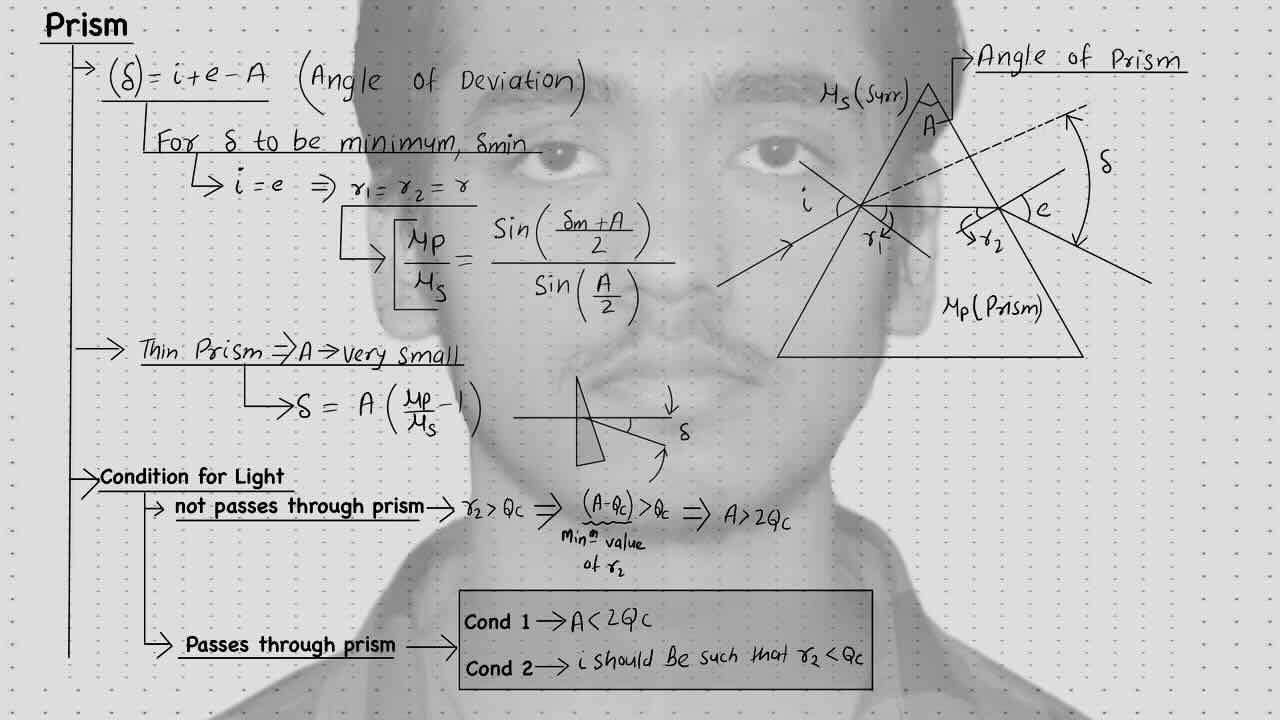 Prism
(δ) = i + e - A (Angle of Deviation)
For δ to be minimum, δmin
i = e ⇒ r₁ = r₂ = r
μP/μS = Sin((δm + A)/2) / Sin(A/2)
Angle of Prism
μS (Surr)
A
δ
i
e
r₁
r₂
μP (Prism)
Thin Prism ⇒ A → very small
δ = A (μP/μS - 1)
δ
Condition for Light
not passes through prism → r₂ > Qc ⇒ (A-Qc) > Qc ⇒ A > 2Qc
Minᵐ value
of r₂
Passes through prism →
Cond 1 → A < 2Qc
Cond 2 → i should Be such that r₂ < Qc